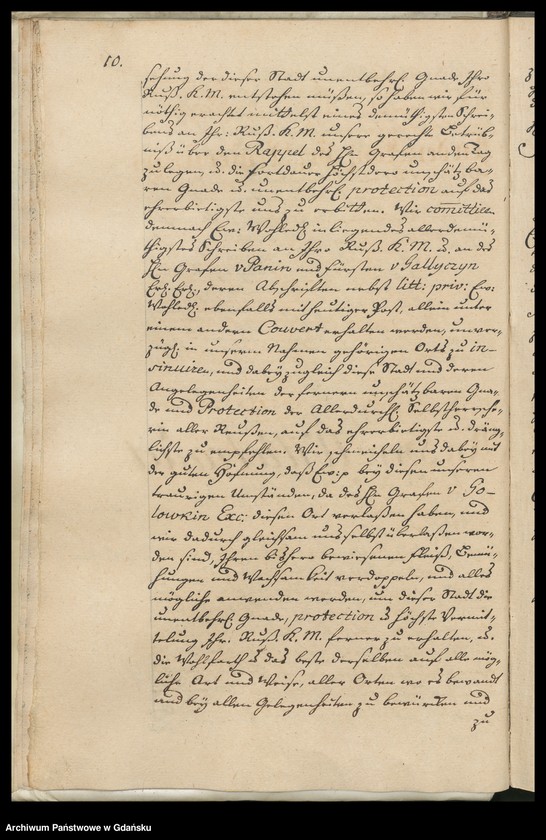 10.
sehung der dieser Stadt unentbehrl. Gnade Ihro
Russ. K. M. entstehen müßen, so haben wir für
nöthig erachtet mittelst eines demüthigsten Schrei-
bens an Ihr: Russ. K. M. unsere gerechte Betrüb-
niß über den Rappel des Hn Grafen an den Tag
zu legen, u. die Fortdauer Höchstdero unschätzba-
ren Gnade u. unentbehrl. protection auf das
ehrerbietigste uns zu erbitten. Wir comittiren
demnach Ew. Wohledl. inliegendes allerdemü-
thigstes Schreiben an Ihro Russ. K. M. u. an des
Hn Grafen v Panin und Fürsten v Gallyczyn
Erl. Erl., deren Abschriften nebst litt: priv: Ew:
Wohledl. ebenfalls mit heutiger Post, allein unter
einem andern Couvert erhalten werden, unver-
zügl. in unserm Nahmen gehörigen Orts zu in-
sinuiren, und dabey zugleich diese Stadt und deren
Angelegenheiten der fernern unschätzbaren Gna-
de und Protection der Allerdurchl. Selbstherrsche-
rin aller Reussen, auf das ehrerbietigste u. dring-
lichste zu empfehlen. Wir schmeicheln uns dabey mit
der guten Hofnung, daß Ew: p bey diesen unseren
traurigen Umständen, da des Hn Grafen v Go-
lowkin Exc: diesen Ort verlaßen haben, und
wir dadurch gleichsam uns selbst überlaßen wor-
den sind, Ihren bishero bewiesenen Fleiß, Bemü-
hungen und Wachsamkeit verdoppeln, und alles
mögliche anwenden werden, um dieser Stadt die
unentbehrl. Gnade, protection u. höchste Vermit-
telung Ihr. Russ. K. M. ferner zu erhalten, u.
die Wohlfarth u. das beste derselben auf alle mög-
liche Art und Weise, aller Orten wo es bewandt
und bey allen Gelegenheiten zu bewürken und
zu
Archiwum Państwowe w Gdańsku